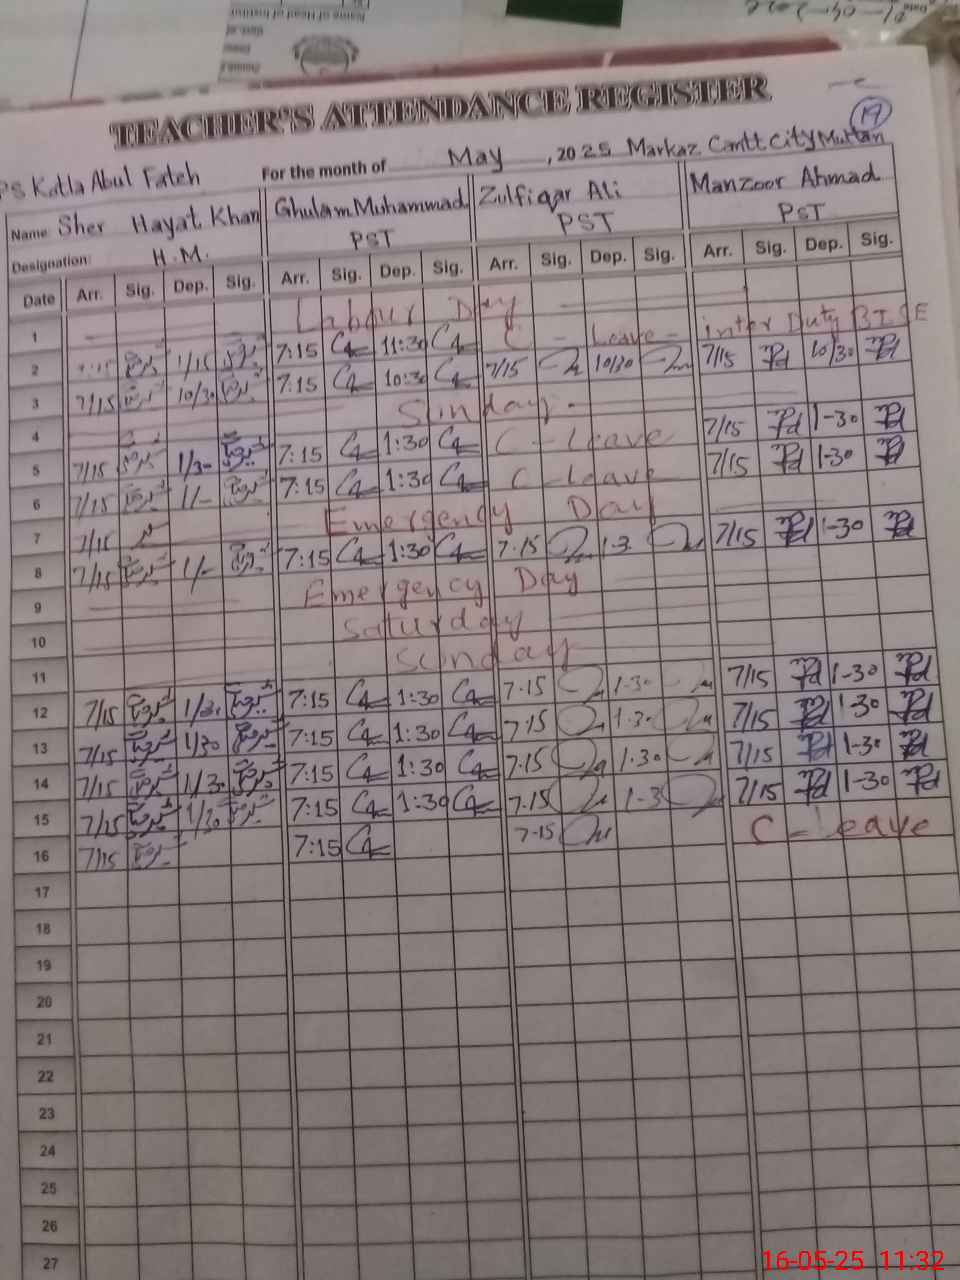 Name of Head of Institut
21-04-2022
TEACHER'S ATTENDANCE REGISTER
19
PS Kotla Abul Fateh For the month of May, 2025 Markaz Cantt City Multan
Name: Sher Hayat Khan Ghulam Muhammad Zulfiqar Ali Manzoor Ahmad
Designation: H.M. PST PST PST
Date Arr. Sig. Dep. Sig. Arr. Sig. Dep. Sig. Arr. Sig. Dep. Sig. Arr. Sig. Dep. Sig.
1 Labour Day
2 7:15 1/15 7:15 11:30 C - Leave - inter Duty BISE
3 7/15 10/30 7:15 10:30 7/15 10/30 7/15 10/30
4 Sunday -
5 7/15 1/30 7:15 1:30 C - Leave 7/15 1-30
6 7/15 1/- 7:15 1:30 C - Leave 7/15 1-30
7 7/15 Emergency Day
8 7/15 1/- 7:15 1:30 7-15 1-3 7/15 1-30
9 Emergency Day
10 Saturday
11 Sunday
12 7/15 1/30 7:15 1:30 7-15 1-30 7/15 1-30
13 7/15 1/30 7:15 1:30 7-15 1-30 7/15 1-30
14 7/15 1/30 7:15 1:30 7-15 1-30 7/15 1-30
15 7/15 1/30 7:15 1:30 7-15 1-3 7/15 1-30
16 7/15 7:15 7-15 C - Leave
17
18
19
20
21
22
23
24
25
26
27
16-05-25 11:32